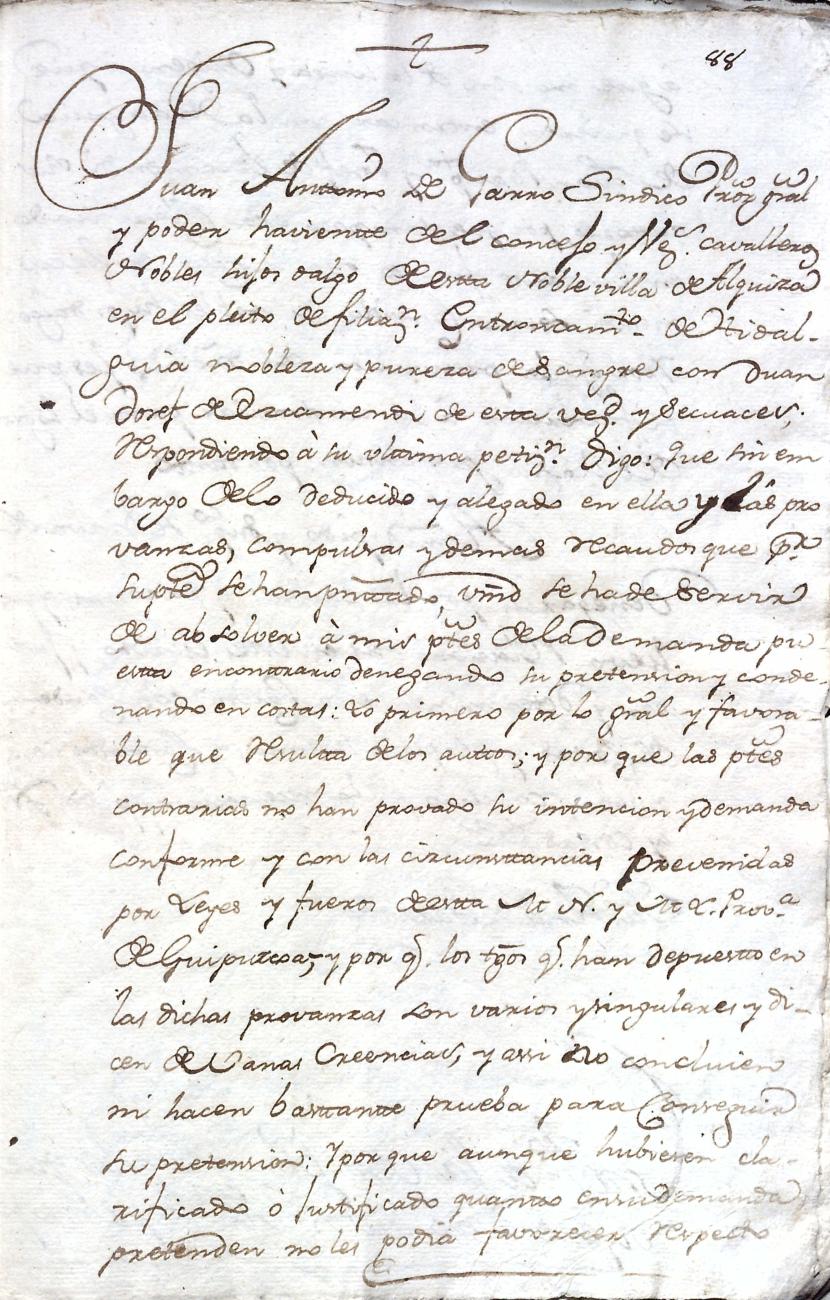 88
Juan Anttonio de Garro Sindico Pror gral
y poder haviente del concejo y Vez.s cavalleros
Nobles hijos dalgo de estta Noble villa de Alquiza
en el pleito de filiaz.n Entroncam.to de Hidal-
guia nobleza y pureza de Sangre con Juan
Josef de Urcamendi de esta vez.d y Secuaces;
Respondiendo à su ultima petiz.n Digo: que sin em
bargo de lo deducido y alegado en ella y las pro
vanzas, compulsas y demas Recaudos que p.r
su pte se han pnttado, vmd se ha de Servir
de absolver à mis ptes de la Demanda pu
estta en conttrario denegando su pretension y conde-
nando en costas: Lo primero por lo gral y favora-
ble que Resultta de los auttos; y por que las ptes
contrarias no han provado su intencion y demanda
conforme y con las circunsttancias prevenidas
por Leyes y fueros de estta M. N. y M. L. Prov.a
de Guipuzcoa, y por q.e los tgos q.e han depuestto en
las dichas provanzas son varios y singulares y di-
cen de Vanas Creencias, y assi no concluien
ni hacen basttantte prueba para Conseguir
su pretension: Y por que aunque hubiesen cla-
rificado ò Justificado quantto en su demanda
pretenden no les podia favorecer Respecto